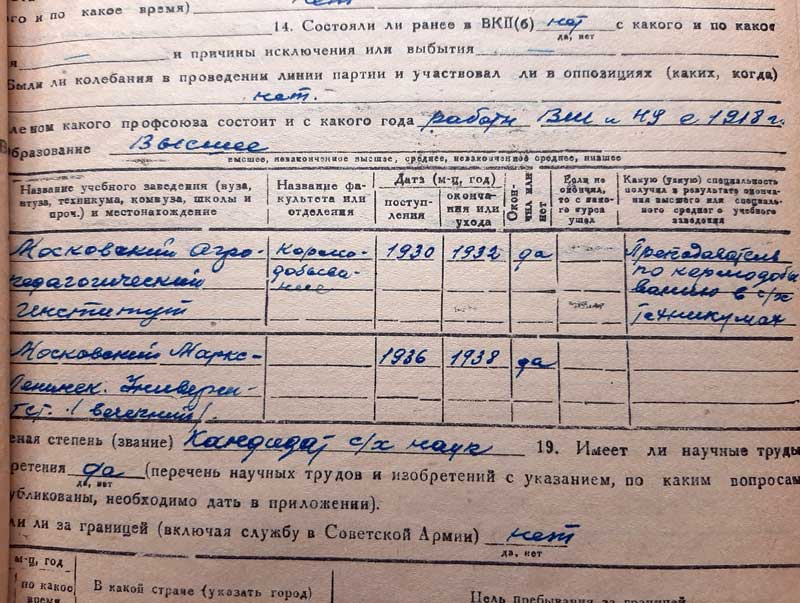 го и по какое время)
14. Состояли ли ранее в ВКП(б) нет с какого и по какое
да, нет
я — и причины исключения или выбытия —
Были ли колебания в проведении линии партии и участвовал ли в оппозициях (каких, когда)
нет.
леном какого профсоюза состоит и с какого года работн ВШ и НУ с 1918 г.
Образование Высшее
высшее, незаконченное высшее, среднее, незаконченное среднее, низшее
Название учебного заведения (вуза, втуза, техникума, комвуза, школы и проч.) и местонахождение
Название факультета или отделения
Дата (м-ц, год)
поступления
окончания или ухода
Окончил или нет
Если не окончил, то с какого курса ушел
Какую (узкую) специальность получил в результате окончания высшего или специального среднего учебного заведения
Московский Агро- кормо- 1930 1932 да Преподаватель
педагогический добыва- по кормодобы
институт ние ванию в с/х
техникумах
Московский Маркс- 1936 1938 да
Ленинск. Универси-
тет. (вечерний).
еная степень (звание) Кандидат с/х наук 19. Имеет ли научные труды
ретения да (перечень научных трудов и изобретений с указанием, по каким вопросам
да, нет
убликованы, необходимо дать в приложении).
ли ли за границей (включая службу в Советской Армии) нет
да, нет
м-ц, год
по какое время
В какой стране (указать город)
Цель пребывания за границей